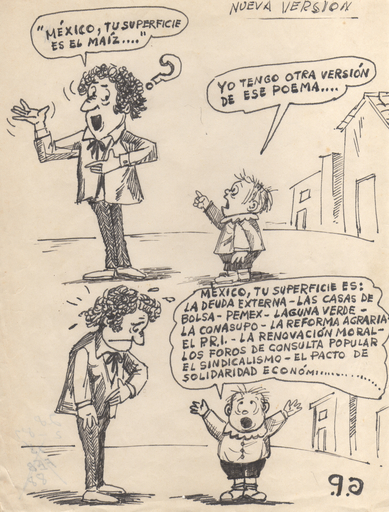 NUEVA VERSION
"MÉXICO, TU SUPERFICIE
ES EL MAÍZ...."
?
YO TENGO OTRA VERSIÓN
DE ESE POEMA....
MÉXICO, TU SUPERFICIE ES:
LA DEUDA EXTERNA-LAS CASAS DE
BOLSA-PEMEX-LAGUNA VERDE-
LA CONASUPO-LA REFORMA AGRARIA-
EL P.R.I.-LA RENOVACIÓN MORAL-
LOS FOROS DE CONSULTA POPULAR
EL SINDICALISMO-EL PACTO DE
SOLIDARIDAD ECONÓMI..............
G.P.